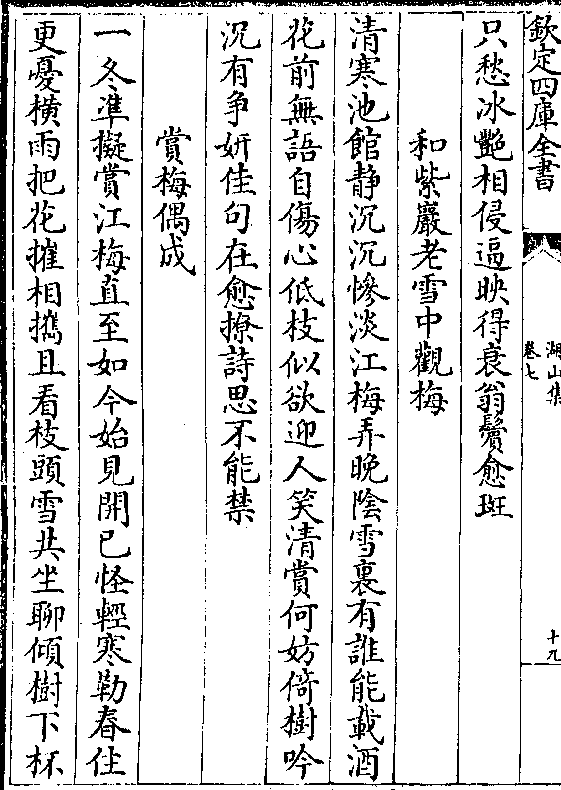 欽定四庫全書
湖山集
卷七
十九
只愁冰艷相侵逼映得衰翁鬢愈斑
和紫巖老雪中觀梅
清寒池館静沉沉慘淡江梅弄晚陰雪裏有誰能載酒
花前無語自傷心低枝似欲迎人笑清賞何妨倚樹吟
況有争妍佳句在愈撩詩思不能禁
賞梅偶成
一冬準擬賞江梅直至如今始見開已怪輕寒勒春住
更憂橫雨把花摧相攜且看枝頭雪共坐聊傾樹下杯